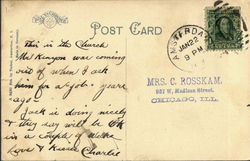 POST CARD
AMSTERDAM
JAN 22
9 PM
this is the Church
Mr. Kenyon was coming
out of when I ask
him for a job years
ago
Jack is doing nicely
+ they day will be OK
in a couple of weeks
Love + Kisses Charlie
MRS. C. ROSSKAM.
937 W. Madison Street.
CHICAGO, ILL.